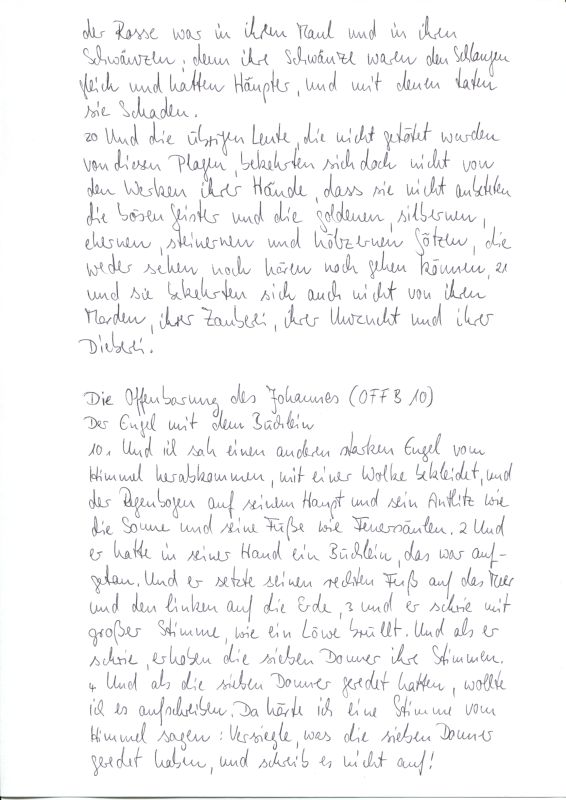 der Rosse war in ihrem Maul und in ihren
Schwänzen; denn ihre Schwänze waren den Schlangen
gleich und hatten Häupter, und mit denen taten
sie Schaden.
20 Und die übrigen Leute, die nicht getötet wurden
von diesen Plagen, bekehrten sich doch nicht von
den Werken ihrer Hände, dass sie nicht anbeteten
die bösen Geister und die goldenen, silbernen,
ehernen, steinernen und hölzernen Götzen, die
weder sehen noch hören noch gehen können, 21
und sie bekehrten sich auch nicht von ihren
Morden, ihrer Zauberei, ihrer Unzucht und ihrer
Dieberei.
Die Offenbarung des Johannes (OFFB 10)
Der Engel mit dem Büchlein
10 1 Und ich sah einen anderen starken Engel vom
Himmel herabkommen, mit einer Wolke bekleidet, und
der Regenbogen auf seinem Haupt und sein Antlitz wie
die Sonne und seine Füße wie Feuersäulen. 2 Und
er hatte in seiner Hand ein Büchlein, das war auf-
getan. Und er setzte seinen rechten Fuß auf das Meer
und den linken auf die Erde, 3 und er schrie mit
großer Stimme, wie ein Löwe brüllt. Und als er
schrie, erhoben die sieben Donner ihre Stimmen.
4 Und als die sieben Donner geredet hatten, wollte
ich es aufschreiben. Da hörte ich eine Stimme vom
Himmel sagen: Versiegle, was die sieben Donner
geredet haben, und schreib es nicht auf!